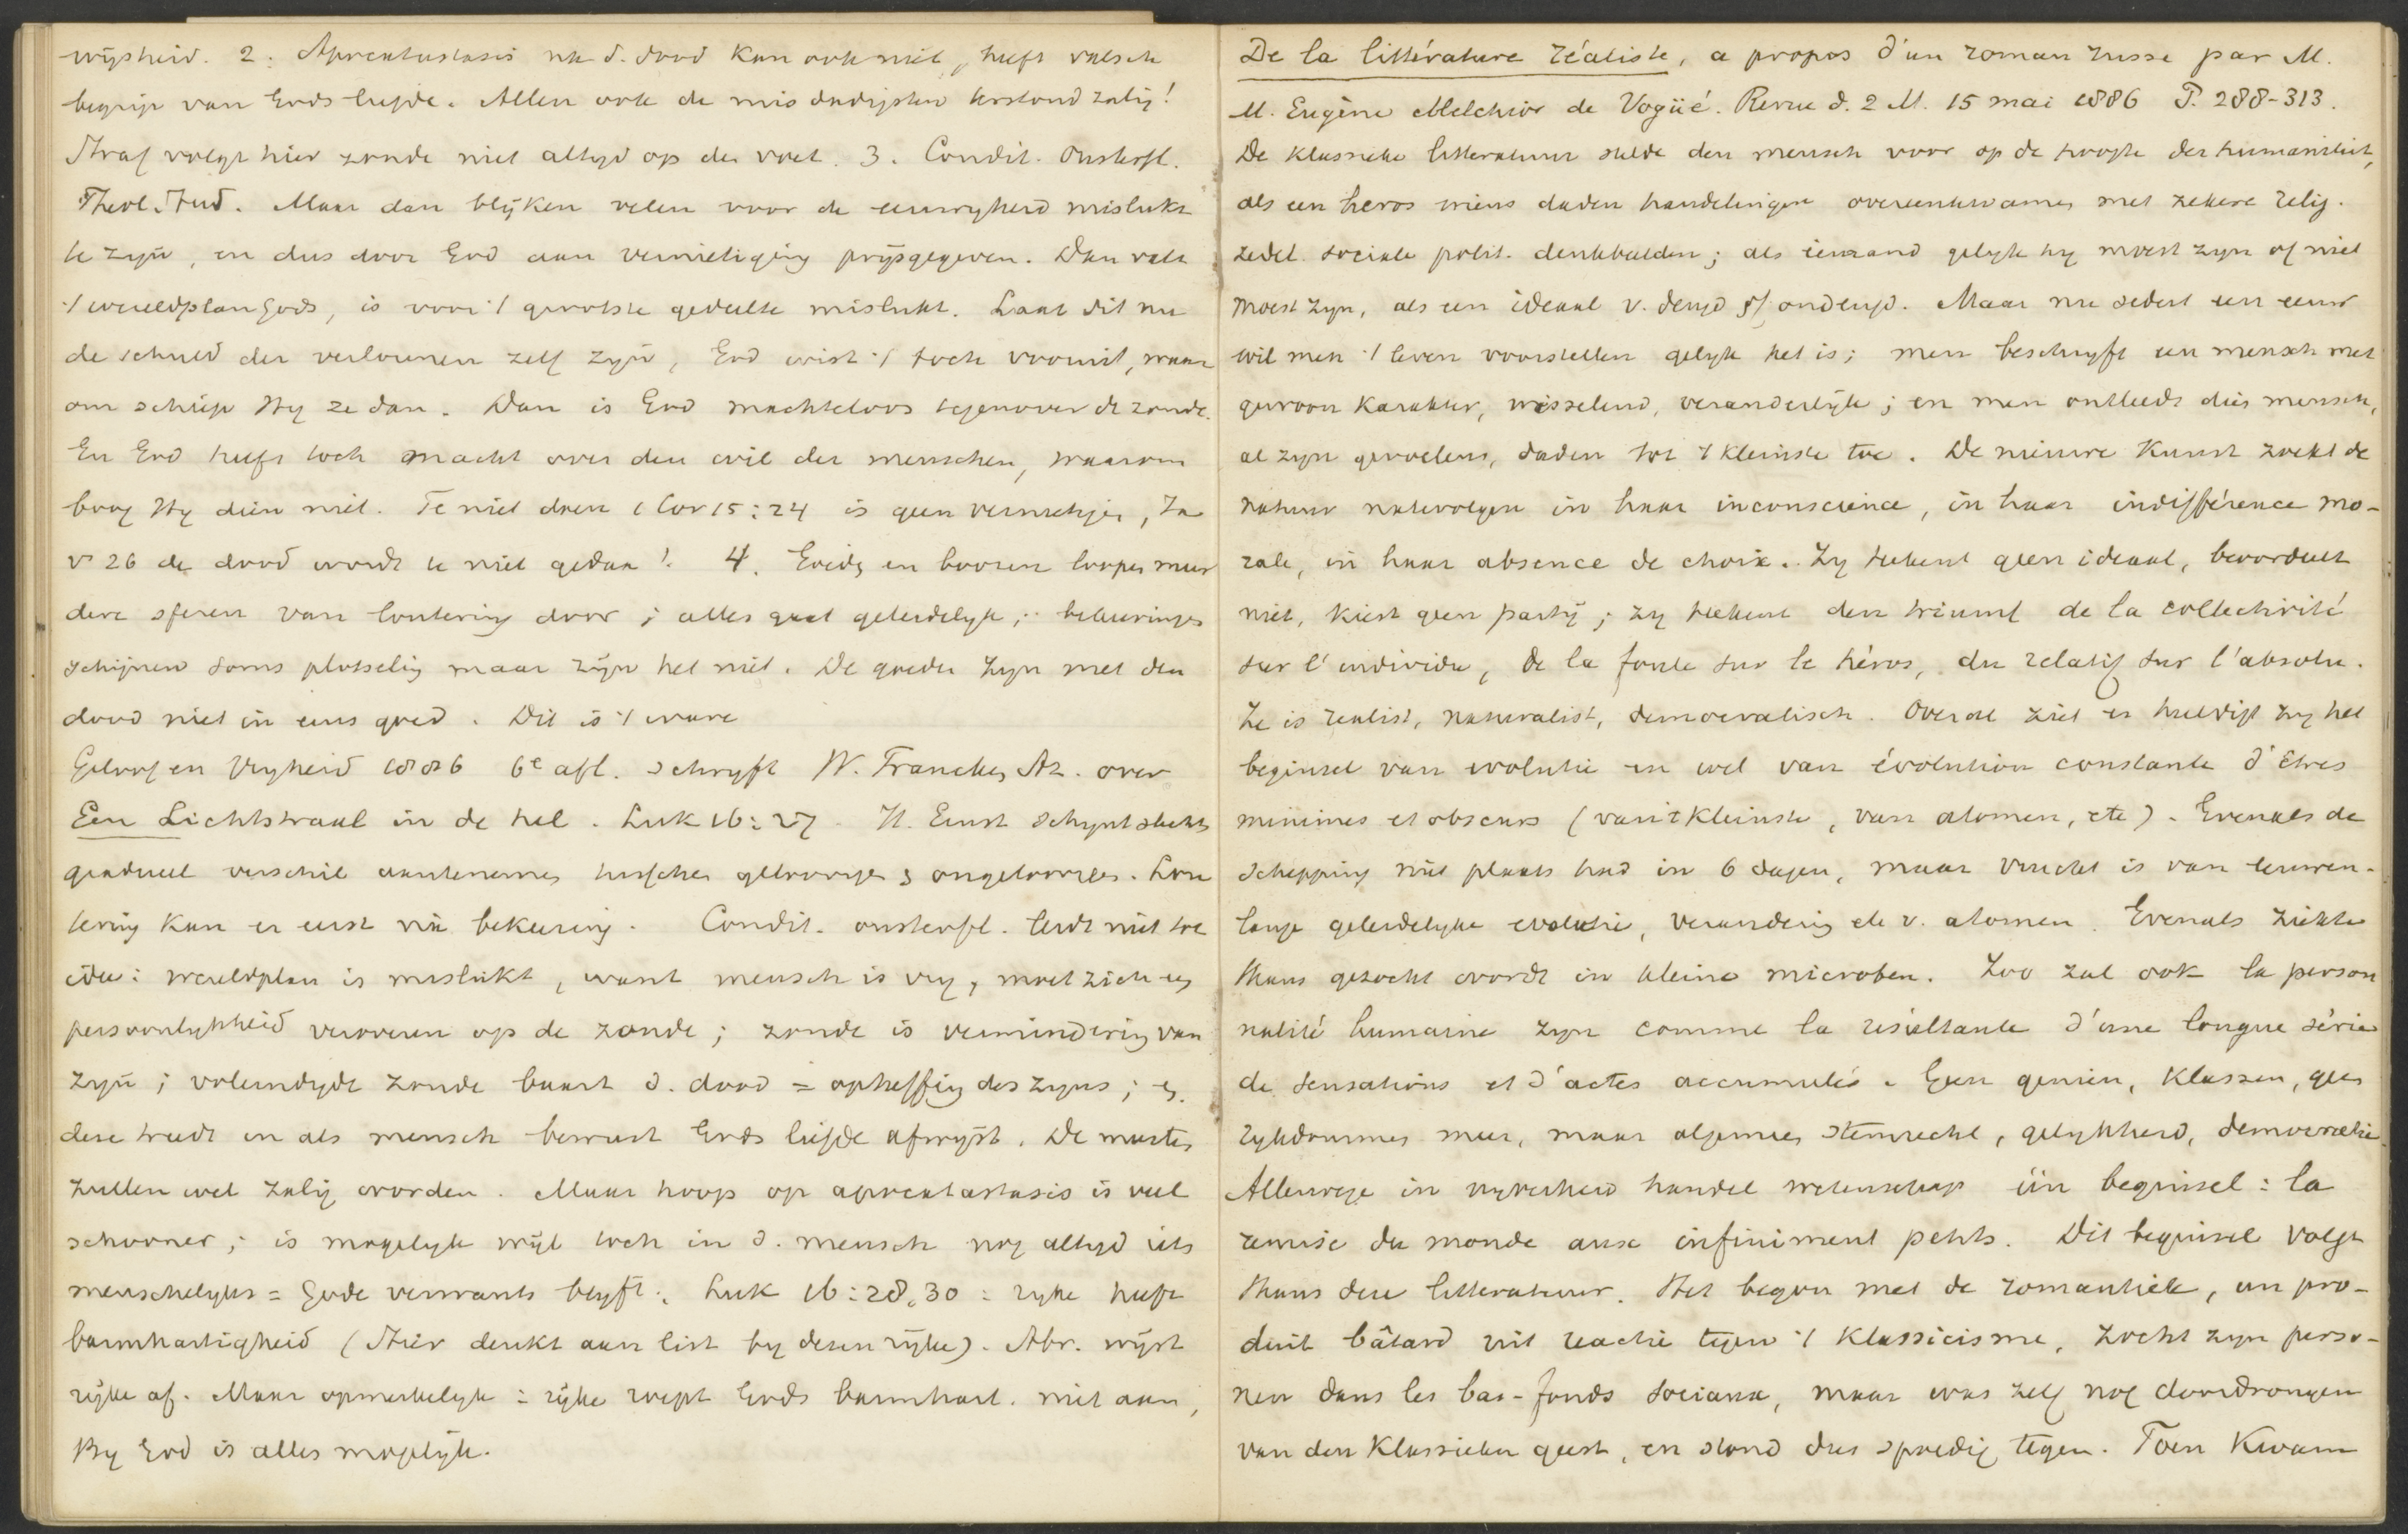 wijsheid. 2. Apocatastasis na d. dood kan ook niet, heeft valsch
begrip van Gods liefde. Allen ook de misdadigsten terstond zalig!
Straf volgt hier zonde niet altyd op den voet. 3. Condit. Onsterfl.
Theol. Stud. Maar dan blijken velen voor de eeuwigheid mislukt
te zijn, en dus door God aan vernietiging prijsgegeven. Dan valt
't wereldplan Gods, is voor 't grootste gedeelte mislukt. Laat dit nu
de schuld der verlorenen zelf zijn, God wist 't toch vooruit, waar
om schiep Hy ze dan. Dan is God machteloos tegenover de zonde.
En God heeft toch macht over den wil der menschen, waarom
boog Hy dien niet. Te niet doen 1 Cor 15:24 is geen vernietigen, Za
v 26 de dood wordt te niet gedaan! 4. Goeden en boozen loopen meer
dere sferen van loutering door; alles gaat geleidelyk; bekeeringen
schijnen soms plotselig maar zijn het niet. De goeden zyn met den
dood niet in eens goed. Dit is 't ware
Geloof en Vryheid 1886 6e afl. schryft W. Francken Az. over
Een Lichtstraal in de hel. Luk 16:27. H. Ernst schynt slechts
gradueel verschil aantenemen tusschen geloovigen & ongeloovigen. Lou
tering kan er eerst na bekeering. Condit. onsterfl. leidt niet tot
idee: wereldplan is mislukt, want mensch is vry, moet zich en
persoonlykheid veroveren op de zonde; zonde is vermindering van
zyn; voleindigde zonde baart d. dood = opheffing des zyns; en
deze treedt in als mensch bewust Gods liefde afwyst. De meesten
zullen wel zalig worden. Maar hoop op apocatastasis is veel
schooner; is mogelyk wijl toch in d. mensch nog altyd iets
menschelyks = Gode verwants blyft. Luk 16:28,30: ryke heeft
barmhartigheid (Stier denkt aan list by dezen rijke). Abr. wyst
rijke af. Maar opmerkelyk: rijke roept Gods barmhart. niet aan,
By God is alles mogelijk.
De la littérature réaliste, a propos d'un roman russe par M.
M. Eugène Melchior de Vogüé. Revue d. 2 M. 15 mai 1886 P. 288-313.
De klassieke litteratuur stelde den mensch voor op de hoogte der humaniteit,
als een heros wiens daden handelingen overeenkwamen met zekere relig.
zedel. sociale polit. denkbeelden; als iemand gelyk hy moest zyn of niet
moest zyn, als een ideaal v. deugd of ondeugd. Maar nu sedert een eeuw
wil men 't leven voorstellen gelyk het is; men beschryft een mensch met
gewoon karakter, wisselend, veranderlijk; en men ontleedt dien mensch,
al zyn gevoelens, daden tot 't kleinste toe. De nieuwe Kunst zoekt de
natuur natevolgen in haar inconscience, in haar indifférence mo-
rale, in haar absence de choix. Zy tekent geen ideaal, beoordeelt
niet, kiest geen partij; zy tekent den triumf de la collectivité
sur l'individu, de la foule sur le héros, du relatif sur l'absolu.
Ze is realist, naturalist, democratisch. Overal ziet en huldigt zy het
beginsel van evolutie en wel van évolution constante d'êtres
minimes et obscurs (van 't kleinste, van atomen, etc). Evenals de
schepping niet plaats had in 6 dagen, maar vrucht is van eeuwen-
lange geleidelyke evolutie, verandering etc v. atomen. Evenals ziekte
thans gezocht wordt in kleine microben. Zoo zal ook la person
nalité humaine zyn comme la résultante d'une longue série
de sensations et d'actes accumulés. Geen genieen, klassen, geen
rykdommen meer, maar algemeen stemrecht, gelykheid, democratie.
Allerwege in nyverheid handel wetenschap één beginsel: la
remise du monde aux infiniment petits. Dit beginsel volgt
thans deze litteratuur. Het begon met de romantiek, un pro-
duit bâtard uit reactie tegen 't Klassicisme, zocht zyn perso-
nen dans les bas-fonds sociaux, maar was zelf nog doordrongen
van den klassieken geest, en stond dus spoedig tegen. Toen kwam